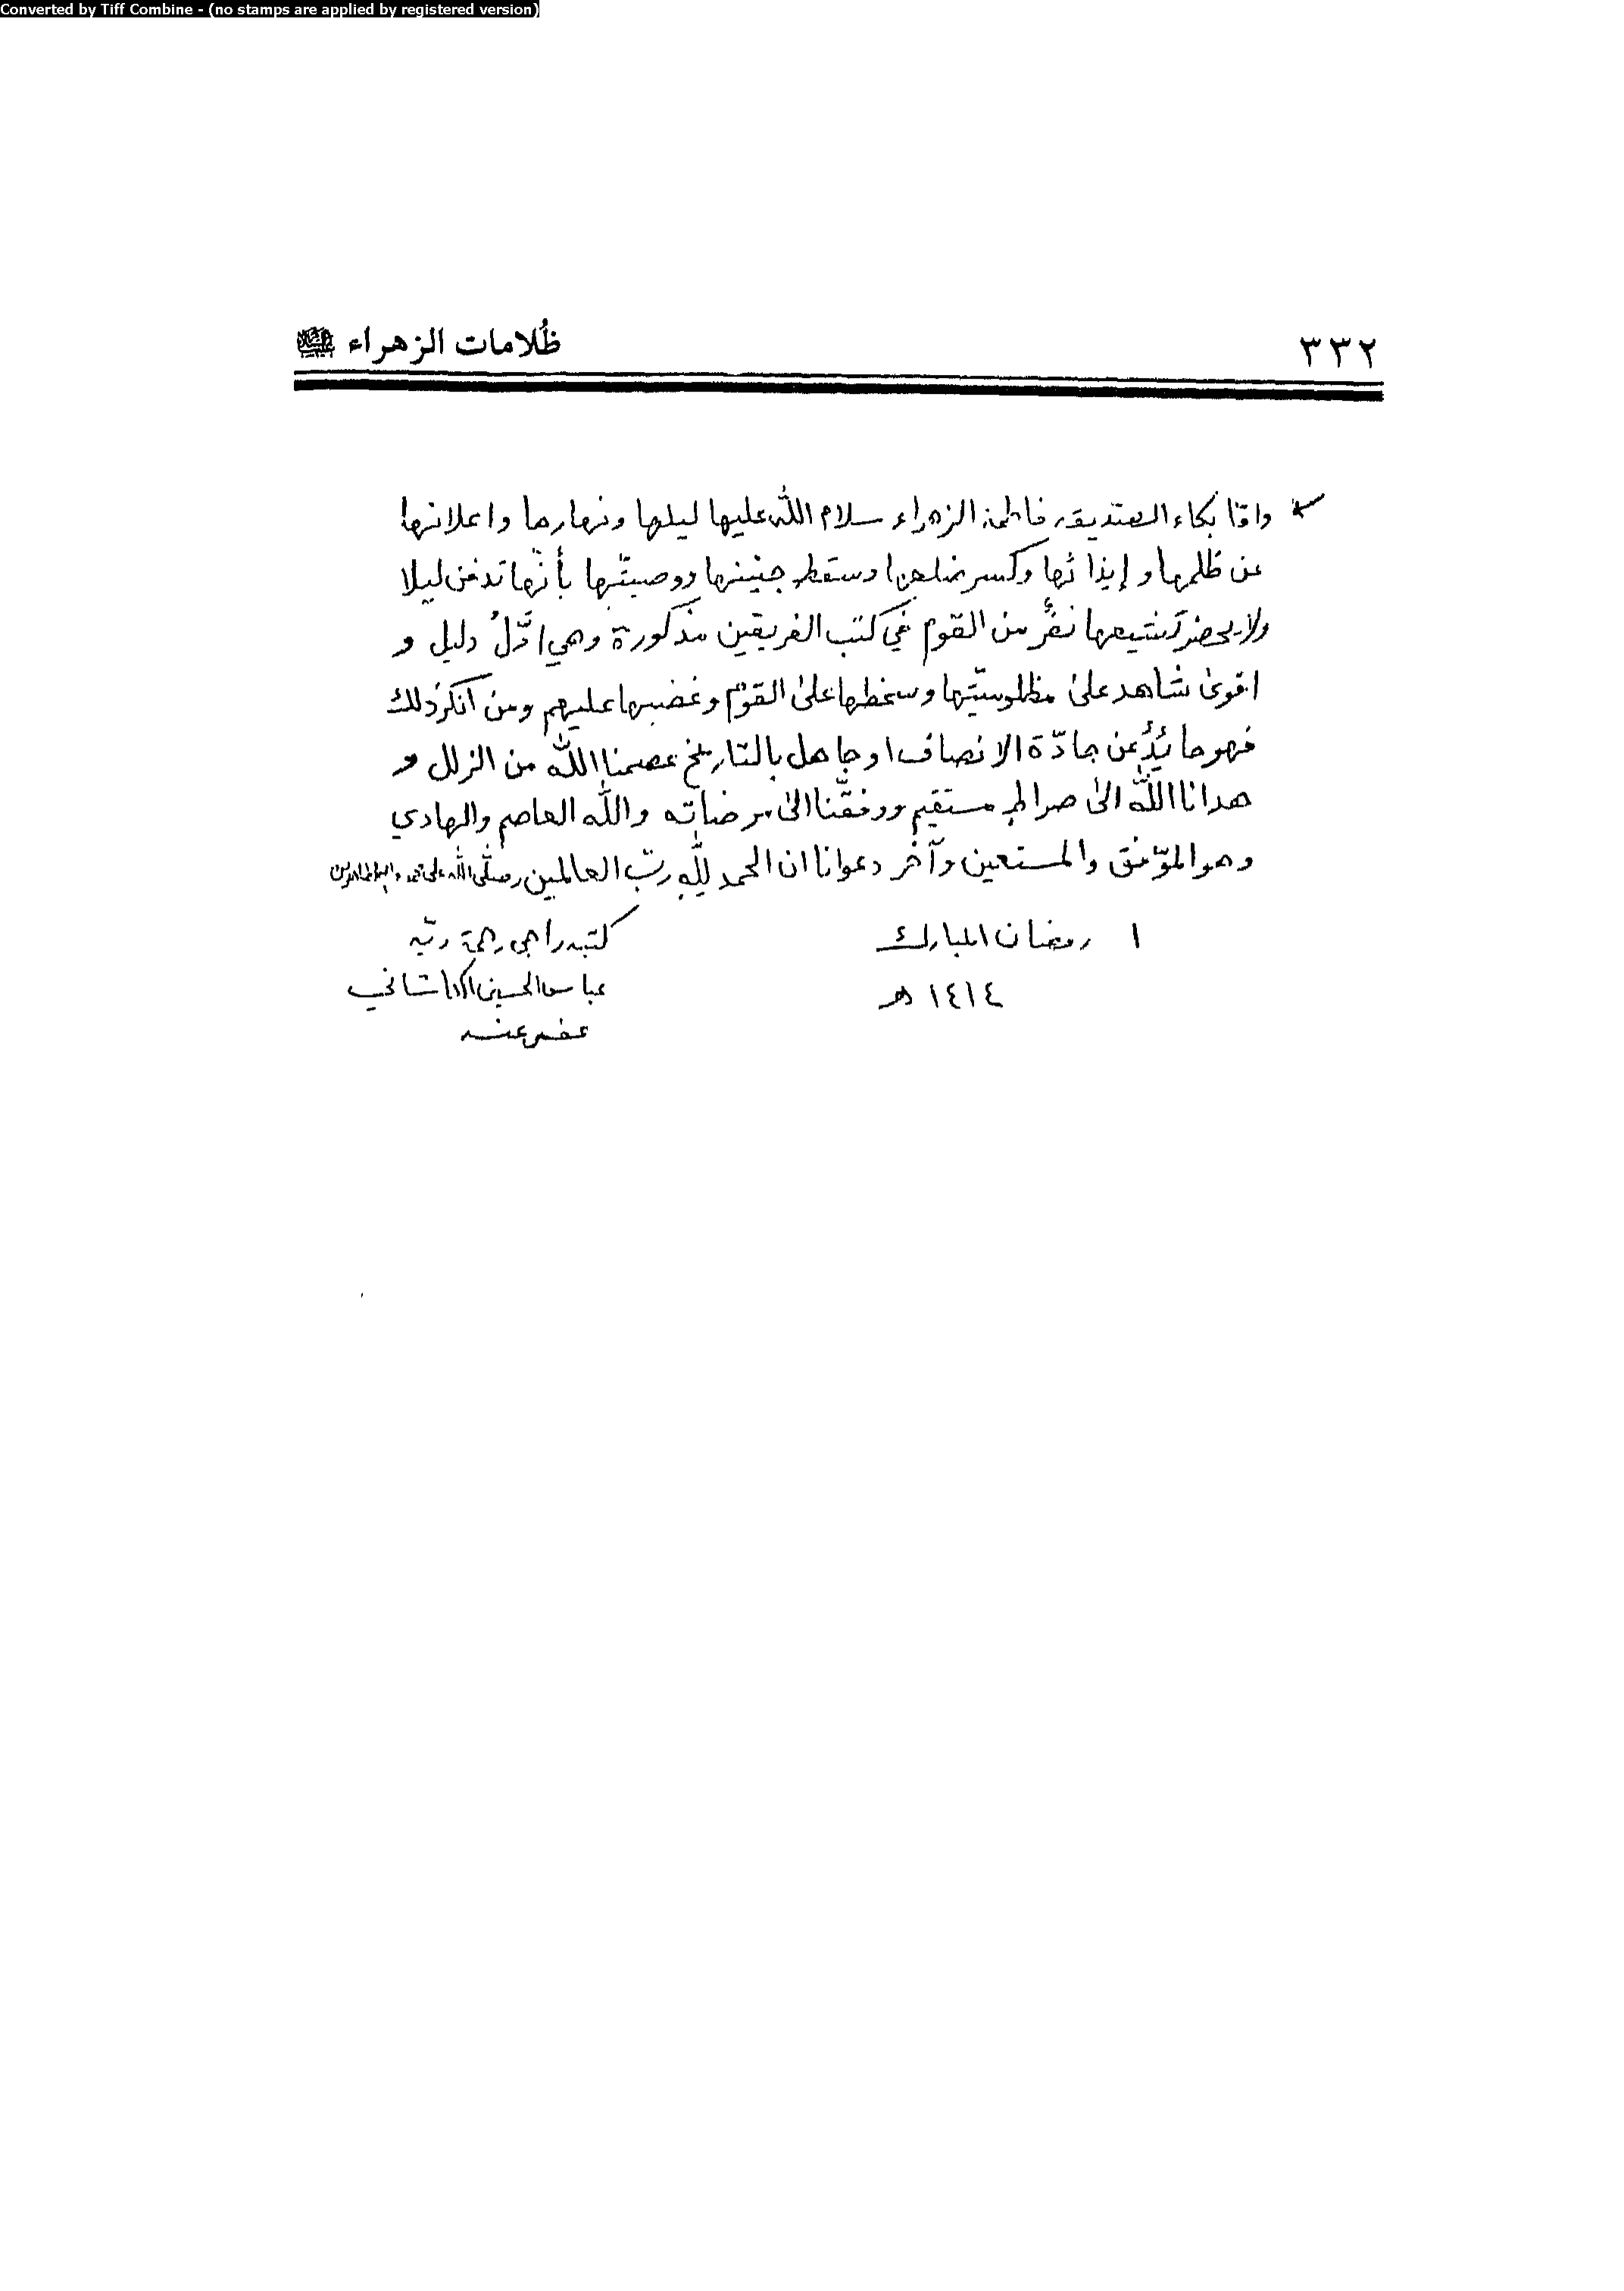 Converted by Tiff Combine - (no stamps are applied by registered version)
٣٣٢
ظُلامات الزهراء
وامّا بكاء الصديقة فاطمة الزهراء سلام الله عليها ليلها ونهارها واعلانها
عن ظلمها وإيذائها وكسر ضلعها وسقط جنينها ووصيتّها بأنّها تدفن ليلا
ولا يحضر تشيعها نفرٌ من القوم في كتب الفريقين مذكورة وهي اوّلُ دليل و
اقوىٰ شاهد علىٰ مظلوميّتها وسخطها علىٰ القوم وغضبها عليهم ومن انكر ذلك
فهو حائدٌ عن جادّة الانصاف او جاهل بالتاريخ عصمنا الله من الزلل و
هدانا الله الىٰ صراط مستقيم ووفقّنا الىٰ مرضاته والله العاصم والهادي
وهو الموّفق والمستعين وآخر دعوانا ان الحمد للّهِ ربّ العالمين وصلّى الله على محمد وآله الطاهرين
١ رمضان المبارك
١٤١٤ هـ
كتبه راجي رحمة ربّه
عباس الحسيني الكاشاني
عفي عنه